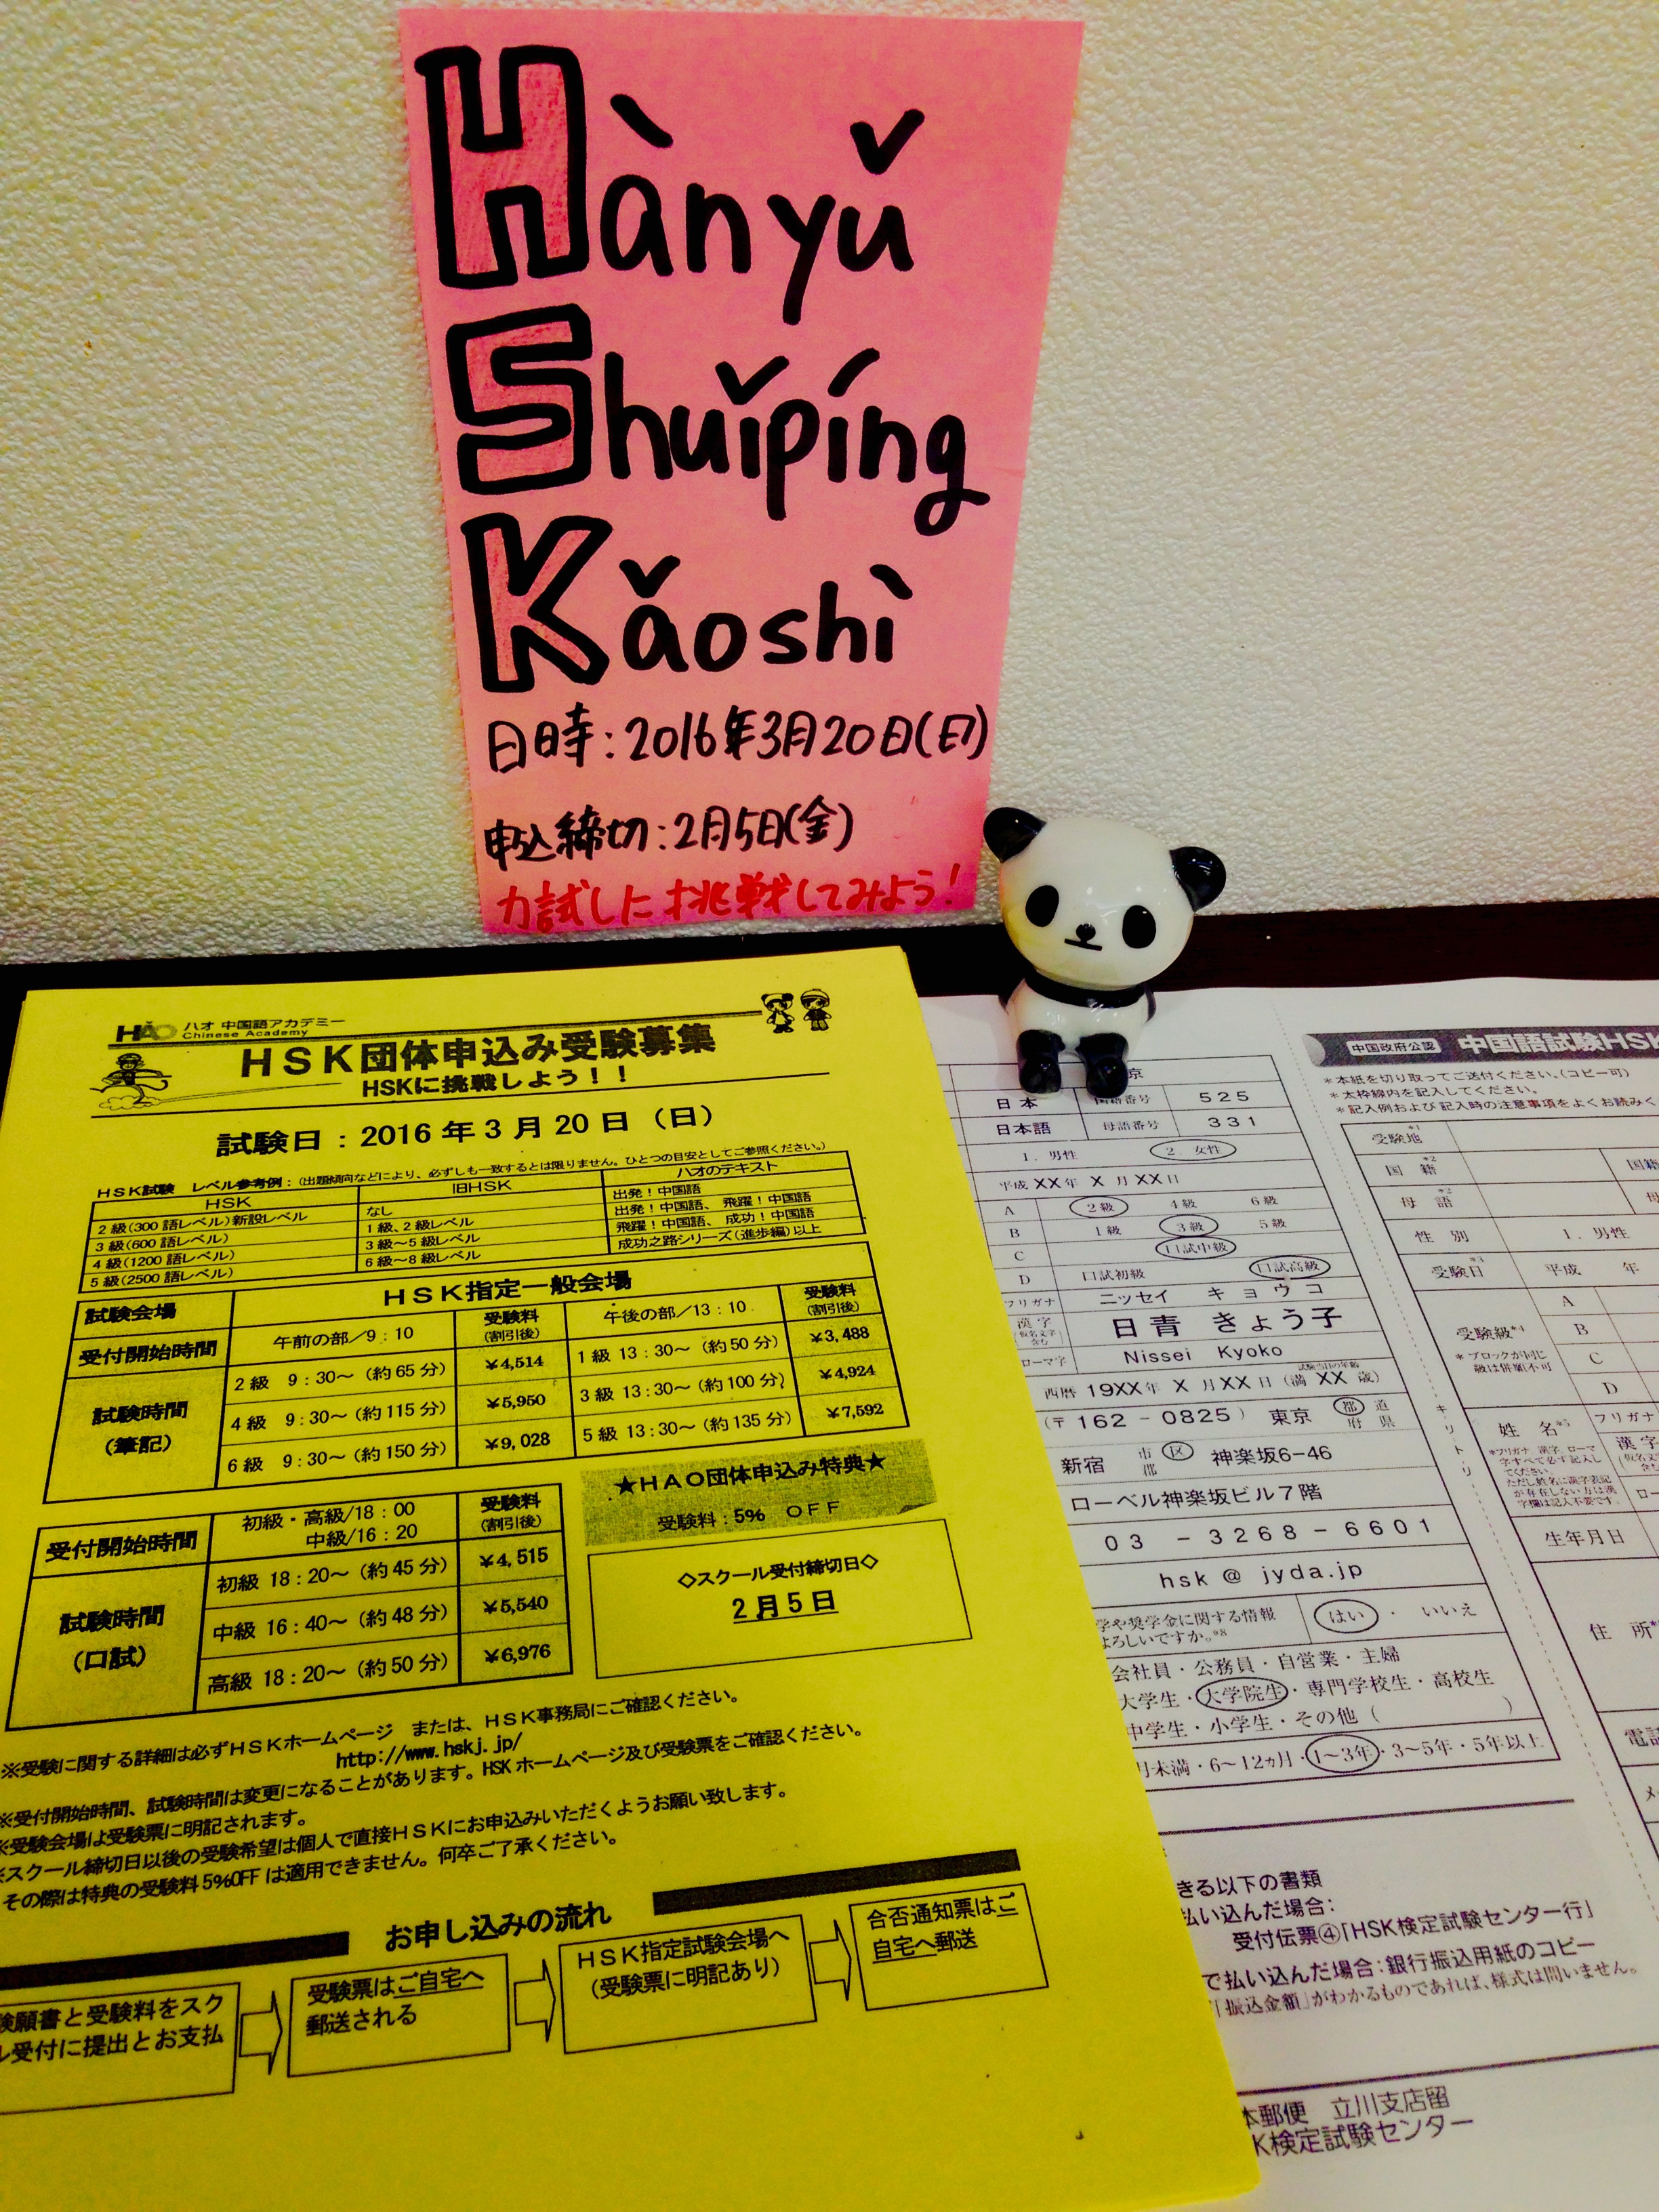 Hànyǔ
Shuǐpíng
Kǎoshì
日時:2016年3月20日(日)
申込締切:2月5日(金)
力試しに挑戦してみよう!
HAO ハオ 中国語アカデミー
Chinese Academy
HSK団体申込み受験募集
HSKに挑戦しよう!!
試験日:2016年3月20日(日)
HSK試験 レベル参考例:(出題傾向などにより、必ずしも一致するとは限りません。ひとつの目安としてご参照ください。)
HSK 旧HSK ハオのテキスト
2級(300語レベル)新設レベル なし 出発!中国語
3級(600語レベル) 1級、2級レベル 出発!中国語、飛躍!中国語
4級(1200語レベル) 3級~5級レベル 飛躍!中国語、成功!中国語
5級(2500語レベル) 6級~8級レベル 成功之路シリーズ(進歩編)以上
試験会場 HSK指定一般会場
受付開始時間 午前の部/9:10 受験料(割引後) 午後の部/13:10 受験料(割引後)
試験時間(筆記)
2級 9:30~(約65分) ¥4,514 1級 13:30~(約50分) ¥3,488
4級 9:30~(約115分) ¥5,950 3級 13:30~(約100分) ¥4,924
6級 9:30~(約150分) ¥9,028 5級 13:30~(約135分) ¥7,592
受付開始時間 初級・高級/18:00 中級/16:20 受験料(割引後)
試験時間(口試)
初級 18:20~(約45分) ¥4,515
中級 16:40~(約48分) ¥5,540
高級 18:20~(約50分) ¥6,976
★HAO団体申込み特典★
受験料:5% OFF
◇スクール受付締切日◇
2月5日
※受験に関する詳細は必ずHSKホームページ または、HSK事務局にご確認ください。
http://www.hskj.jp/
※受付開始時間、試験時間は変更になることがあります。HSKホームページ及び受験票をご確認ください。
※受験会場は受験票に明記されます。
※スクール締切日以後の受験希望は個人で直接HSKにお申込みいただくようお願い致します。
その際は特典の受験料5%OFFは適用できません。何卒ご了承ください。
お申し込みの流れ
験願書と受験料をスク
ル受付に提出とお支払
受験票はご自宅へ
郵送される
HSK指定試験会場へ
(受験票に明記あり)
合否通知票はご
自宅へ郵送
京
日本 国籍番号 525
日本語 母語番号 331
1. 男性 2 女性
平成XX年 X月XX日
A 2級 4級 6級
B 1級 3級 5級
C 口試中級
D 口試初級 口試高級
フリガナ ニッセイ キョウコ
漢字 日青 きょう子
ローマ字 Nissei Kyoko
試験当日の年齢
西暦 19XX年 X月XX日(満XX歳)
(〒162-0825) 東京 都道府県
新宿 市区郡 神楽坂6-46
ローベル神楽坂ビル7階
03-3268-6601
hsk@jyda.jp
学や奨学金に関する情報 はい・いいえ
よろしいですか。※8
会社員・公務員・自営業・主婦
大学生・大学院生・専門学校生・高校生
中学生・小学生・その他( )
月未満・6~12ヵ月・1~3年・3~5年・5年以上
きる以下の書類
払い込んだ場合:
受付伝票④「HSK検定試験センター行」
で払い込んだ場合:銀行振込用紙のコピー
「振込金額」がわかるものであれば、様式は問いません。
本郵便 立川支店留
K検定試験センター
キリトリ
中国政府公認 中国語試験HSK
*本紙を切り取ってご送付ください。(コピー可)
*太枠線内を記入してください。
*記入例および記入時の注意事項をよくお読みく
受験地※1
国籍※2 国籍
母語※2 母
性別 1. 男性
受験日※3 平成 年
受験級※4
*ブロックが同じ
級は併願不可
A
B
C
D
姓名※5 フリガナ
漢字
ロー
*フリガナ 漢字、ローマ
字すべて必ず記入し
てください
ただし姓名に漢字表記
が存在しない方は漢
字欄は記入不要です。
生年月日
住所
電話
メ